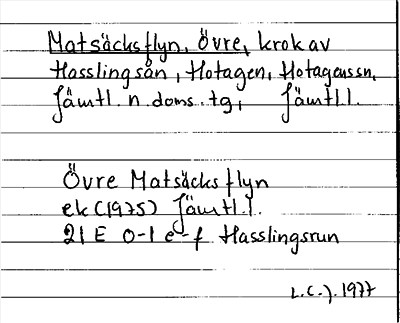 Matsäcksflyn, Övre, krok av
Hasslingsån, Hotagen, Hotagens sn,
Jämtl. n. doms. tg, Jämtl l.
Övre Matsäcksflyn
ek (1975) Jämtl. l.
21 E 0-1 e-f Hasslingsrun
L.C.J. 1977